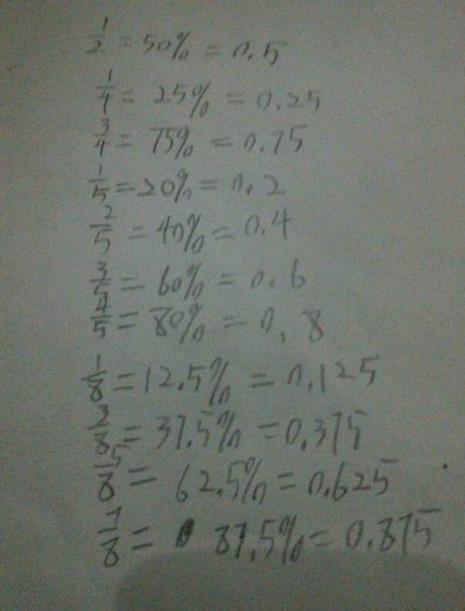 1/2 = 50% = 0.5
1/4 = 25% = 0.25
3/4 = 75% = 0.75
1/5 = 20% = 0.2
2/5 = 40% = 0.4
3/5 = 60% = 0.6
4/5 = 80% = 0.8
1/8 = 12.5% = 0.125
3/8 = 37.5% = 0.375
5/8 = 62.5% = 0.625
7/8 = 87.5% = 0.875